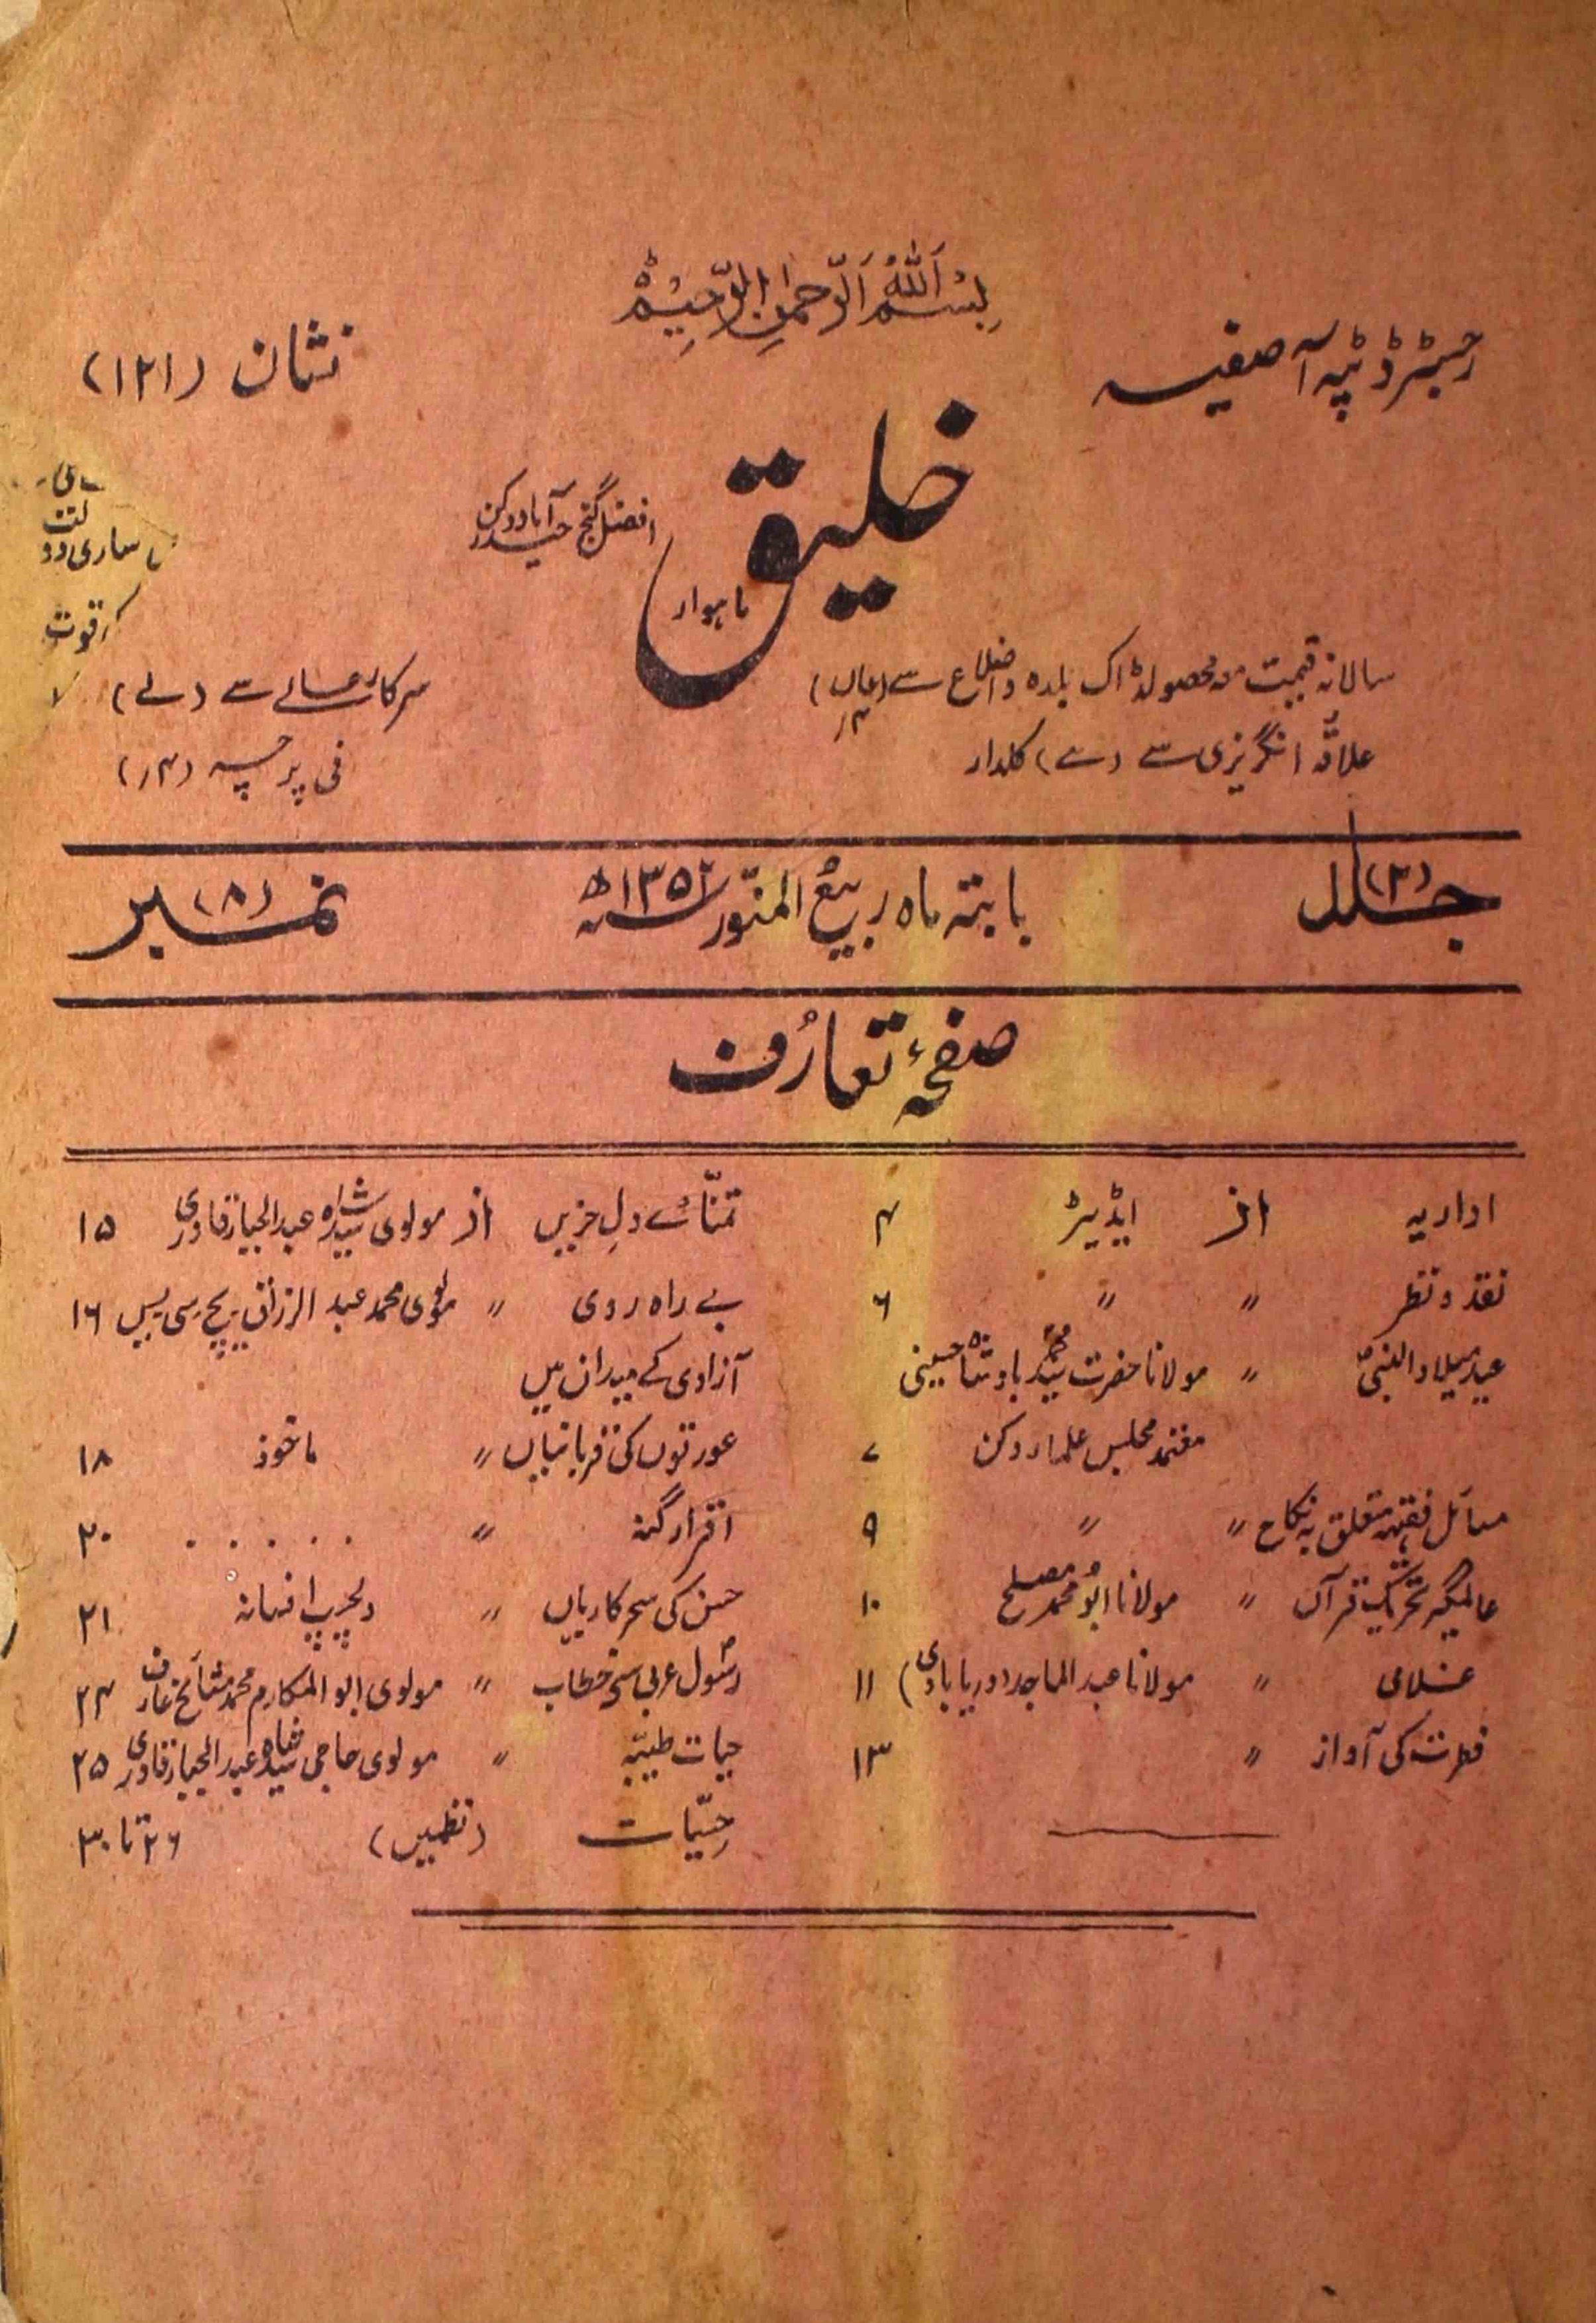 بِسْمِ اللّٰہِ الرَّحْمٰنِ الرَّحِیْمِ
رجسٹرڈ ٹپہ آصفیہ
نشان (۱۲۱)
خلیق
ماہوار
افضل گنج حیدرآباد دکن
سالانہ قیمت معہ محصولڈاک بلدہ و اضلاع سے
سرکار عالی سے
علاقہ انگریزی سے کلدار
فی پرچہ (۴؍)
جلد (۳) بابتہ ماہ ربیع المنوّر سنہ ۱۳۵۲ھ نمبر (۸)
صفحۂ تعارُف
اداریہ از ایڈیٹر ۴
نقد و نظر 〃 〃 ۶
عید میلاد النبیؐ 〃 مولانا حضرت سید محمد بادشاہ حسینی
معتمد مجلس علماء دکن ۷
مسائل فقہیہ متعلق بہ نکاح 〃 〃 ۹
عالمگیر تحریک قرآن 〃 مولانا ابو محمد مصلح ۱۰
غلامی 〃 مولانا عبد الماجد دریابادی) ۱۱
فطرت کی آواز 〃 ۱۳
تمنّائے دلِ حزیں از مولوی سید شاہ عبد الجبار قادری ۱۵
بے راہ روی 〃 مولوی محمد عبد الرزاق یچ سی یس ۱۶
آزادی کے میدان میں
عورتوں کی قربانیاں 〃 ماخوذ ۱۸
اقرار گنہ 〃 . . . . . . ۲۰
حسن کی سحر کاریاں 〃 دلچسپ افسانہ ۲۱
رسول عربی سے خطاب 〃 مولوی ابو المکارم محمد مشائخ عارف ۲۴
حیات طیبّہ 〃 مولوی حاجی سید شاہ عبد الجبار قادری ۲۵
حِسّیات (نظمیں) ۲۶ تا ۳۰
ساری دو
قوت